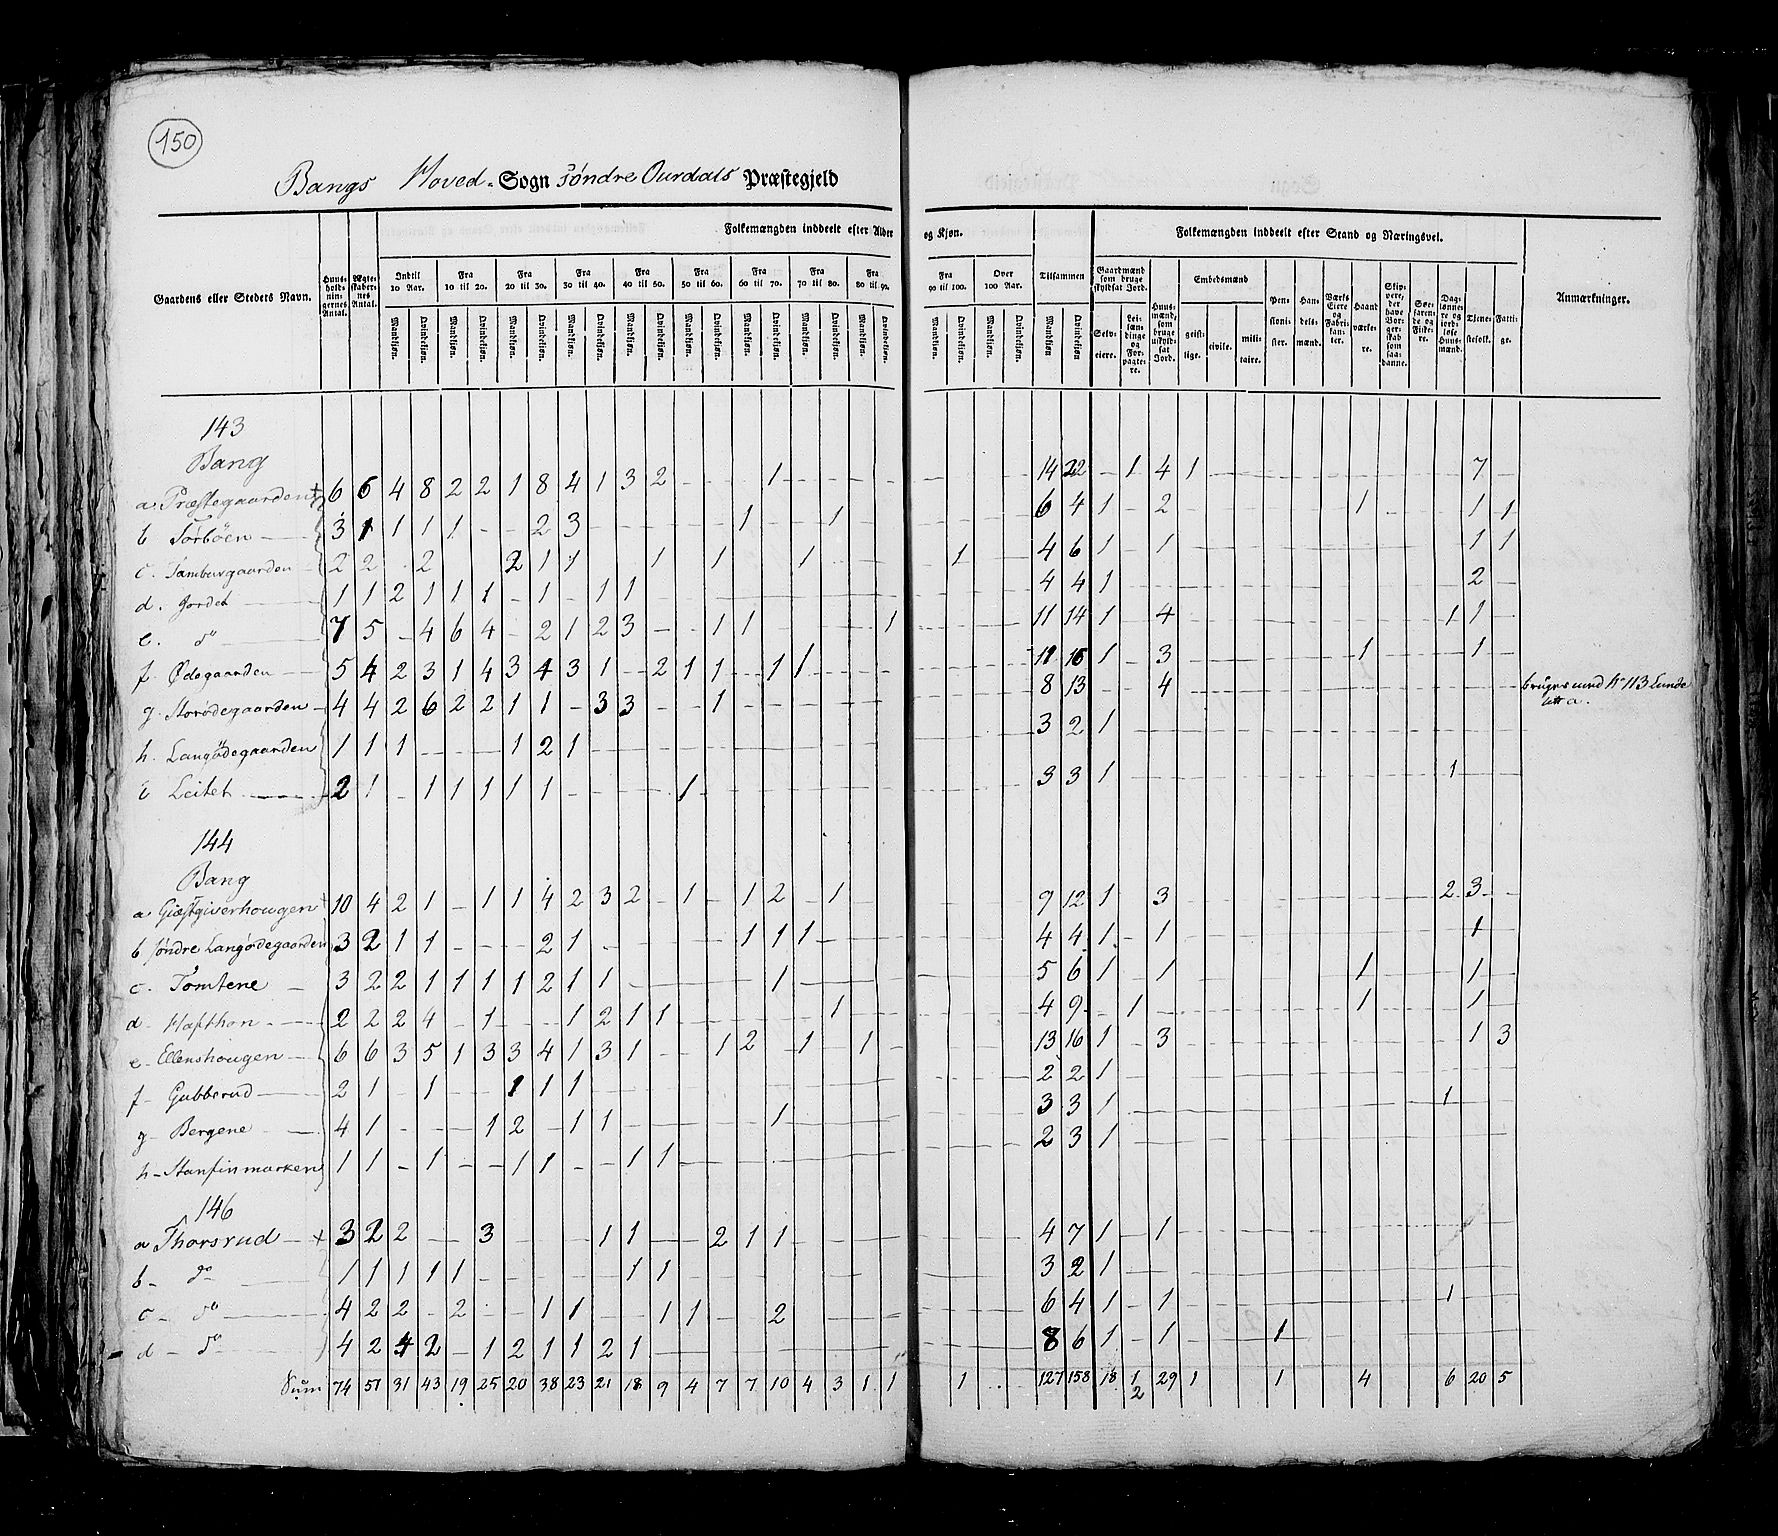 150
Bangs Hoved-Sogn Søndre Ourdals Præstegjeld
Gaardens eller Stedets Navn.
Huus-holdningernes Antal.
Ægteskabernes Antal.
Folkemængden inddeelt efter Alder og Kjøn.
Indtil 10 Aar. Fra 10 til 20. Fra 20 til 30. Fra 30 til 40. Fra 40 til 50. Fra 50 til 60. Fra 60 til 70. Fra 70 til 80. Fra 80 til 90. Fra 90 til 100. Over 100 Aar.
Mandkjøn. Qvindekjøn.
Tilsammen
Mandkjøn Qvindekjøn
Folkemængden inddeelt efter Stand og Næringsvei.
Gaardmænd som bruge skyldsat Jord.
Selv-eiere.
Lei-lændinge og For-pagte-re.
Huus-mænd, som bruge uskyld-sat Jord.
Embedsmænd
geist-lige. civile. mili-taire.
Pen-sioni-ster.
Han-dels-mænd.
Værks Eiere og Fabri-kan-ter.
Haand værke-re.
Skip-pere, der have Bor-ger-skab som saa-danne.
Søe-faren-de og Fiske-re.
Dag-lønne-re og jord-løse Huus-mænd.
Tjene-stefolk.
Fatti-ge.
Anmærkninger.
143
Bang
a. Præstegaarden + 6 6 4 8 2 2 1 8 4 1 3 2 - - - 1 14 22 - 1 4 1 7
b Torböen 3 1 1 1 1 - - 2 3 1 1 6 4 1 - 2 1 1 1
c. Tamburgaarden 2 2 2 2 1 1 1 1 1 1 4 6 1 - 1 1 1
d. Jordet 1 1 2 1 1 1 - 1 - 1 1 4 4 1 2
e. do 7 5 - 4 6 4 - 2 1 2 3 - - 1 1 1 11 14 1 - 4 1 1
f. Ødegaarden 5 4 2 3 1 4 3 1 3 1 - 2 1 1 - 1 1 11 16 1 - 3 1 1
g. Storødegaarden 4 4 2 6 2 2 1 1 - 3 3 - - 1 8 13 - - 4 bruges med No 113 Lunde
Litt a.
h. Langödegaarden 1 1 1 - - - 1 2 1 3 2 1
i Leitet 2 1 - 1 1 1 1 1 1 3 3 1 1
144
Bang
a Giæstgiverhougen 10 4 2 1 - 1 1 4 2 3 2 - 1 - 1 2 - 1 9 12 1 3 2 3
b Søndre Langødegaarden 3 2 1 1 - - - 2 1 1 1 1 4 4 1 - 1 1
c. Tomtene 3 2 2 1 1 1 1 2 1 1 1 5 6 1 - 1 1 1
d Hafthon 2 2 2 4 - 1 - - 1 2 1 1 1 4 9 - 1 1 1
e. Ellenshougen 6 6 3 5 1 3 3 4 1 3 1 - - 1 2 - 1 - 1 13 16 1 - 3 1 3
f Gubberud 2 1 - 1 - - 1 1 1 2 2 1
g Bergene 4 1 - - - 1 2 - 1 1 1 3 3 1 1
h 1 1 - 1 - - 1 1 - - 1 1 2 3 1
146
a Thorsrud + 3 2 2 - - 3 1 1 - 2 1 1 4 7 1 - 1
b do 1 1 1 1 1 1 1 3 2 1
c do 4 2 2 - 2 1 1 - - 1 1 - - 2 6 4 1 - 1 1
d do 4 2 4 2 - 1 2 1 1 2 1 8 6 1 - 1 1
Sum 74 51 31 43 19 25 20 38 23 21 18 9 4 7 7 10 4 3 1 1 1 127 158 18 1 29 1 1 4 6 20 5
2